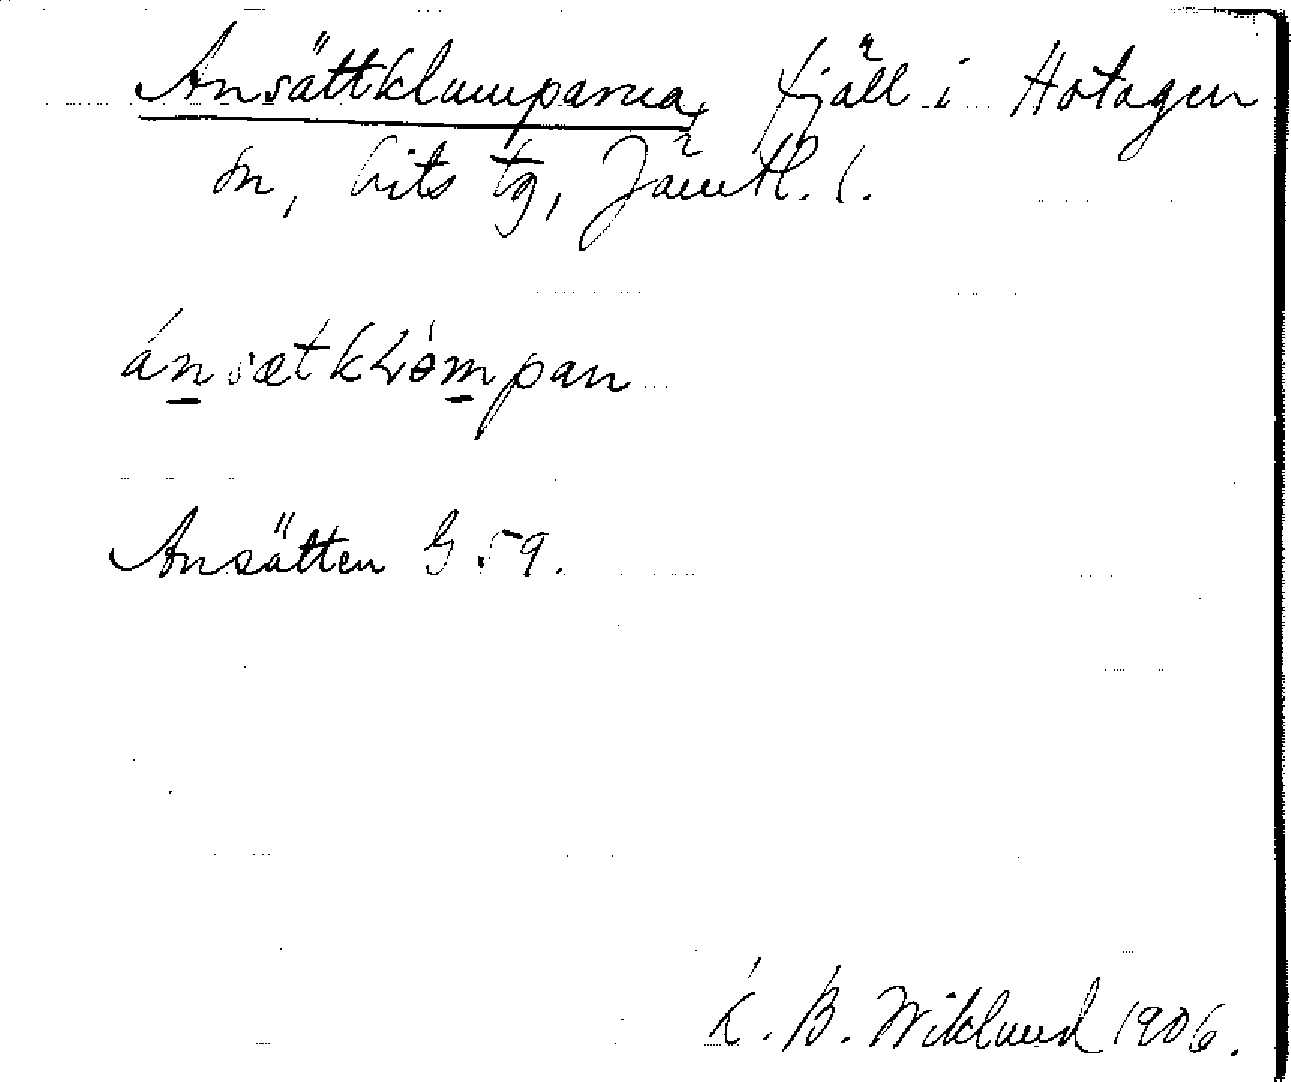 Ansättklumparna, fjäll i Hotagen
sn, Lits tg, Jämtl. l.
ánsætkLómpan
Ansätten G 59.
K. B. Wiklund 1906.